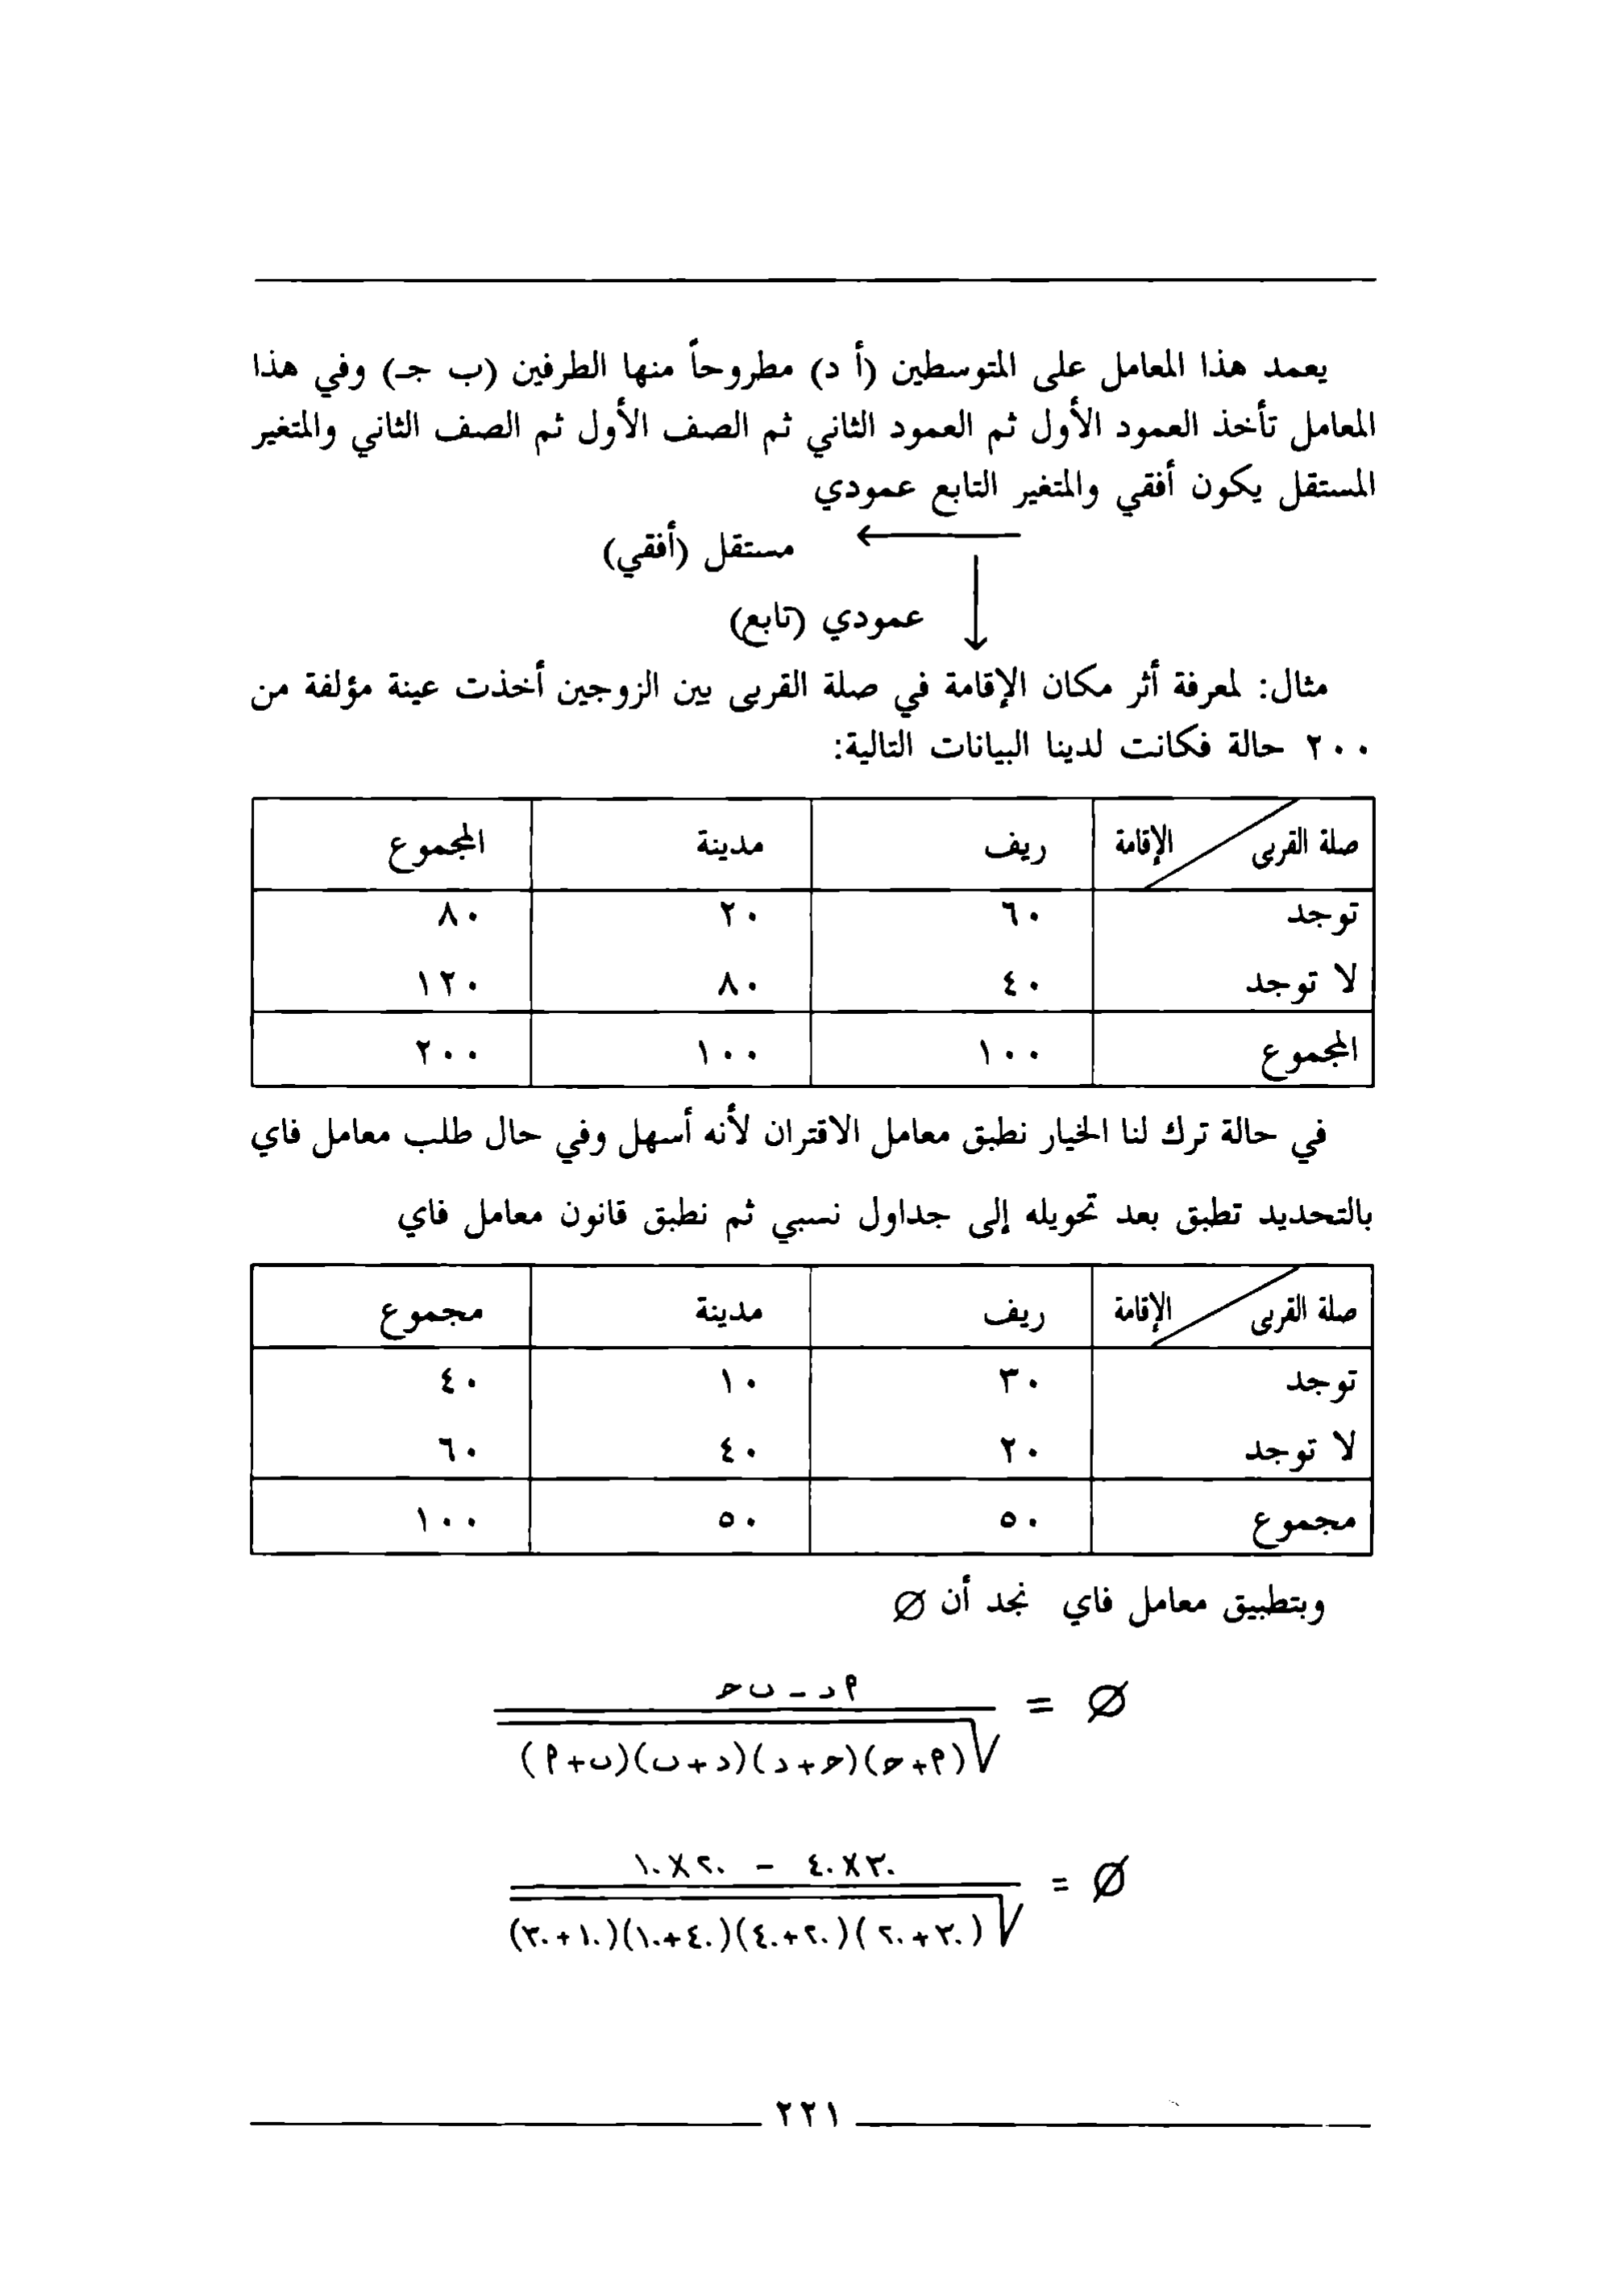 يعمد هذا المعامل على المتوسطين (أ د) مطروحاً منها الطرفين (ب جـ) وفي هذا
المعامل تأخذ العمود الأول ثم العمود الثاني ثم الصف الأول ثم الصف الثاني والمتغير
المستقل يكون أفقي والمتغير التابع عمودي
مستقل (أفقي)
عمودي (تابع)
مثال: لمعرفة أثر مكان الإقامة في صلة القربى بين الزوجين أخذت عينة مؤلفة من
٢٠٠ حالة فكانت لدينا البيانات التالية:
صلة القربى / الإقامة ريف مدينة المجموع
توجد ٦٠ ٢٠ ٨٠
لا توجد ٤٠ ٨٠ ١٢٠
المجموع ١٠٠ ١٠٠ ٢٠٠
في حالة ترك لنا الخيار نطبق معامل الاقتران لأنه أسهل وفي حال طلب معامل فاي
بالتحديد تطبق بعد تحويله إلى جداول نسبي ثم نطبق قانون معامل فاي
صلة القربى / الإقامة ريف مدينة مجموع
توجد ٣٠ ١٠ ٤٠
لا توجد ٢٠ ٤٠ ٦٠
مجموع ٥٠ ٥٠ ١٠٠
وبتطبيق معامل فاي نجد أن Ø
Ø = أ د - ب ح
√(أ+ح)(ح+د)(د+ب)(ب+أ)
Ø = ٣٠×٤٠ - ٢٠×١٠
√(٣٠+٢٠)(٢٠+٤٠)(٤٠+١٠)(١٠+٣٠)
٢٢١